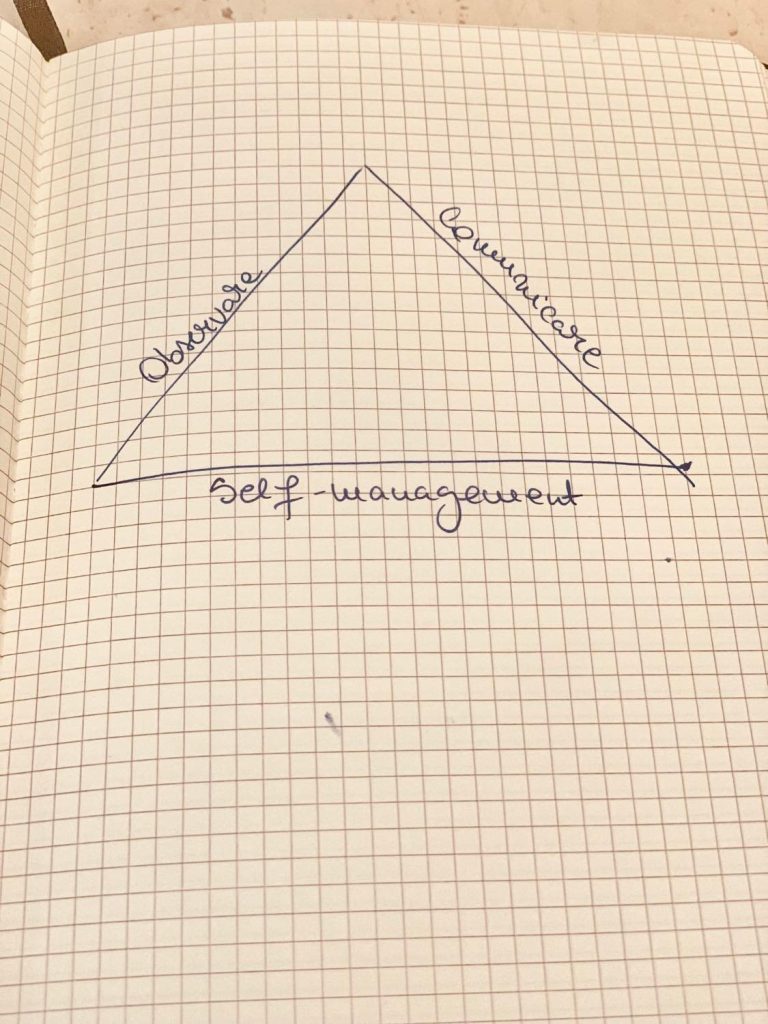 Observare
Comunicare
Self-management